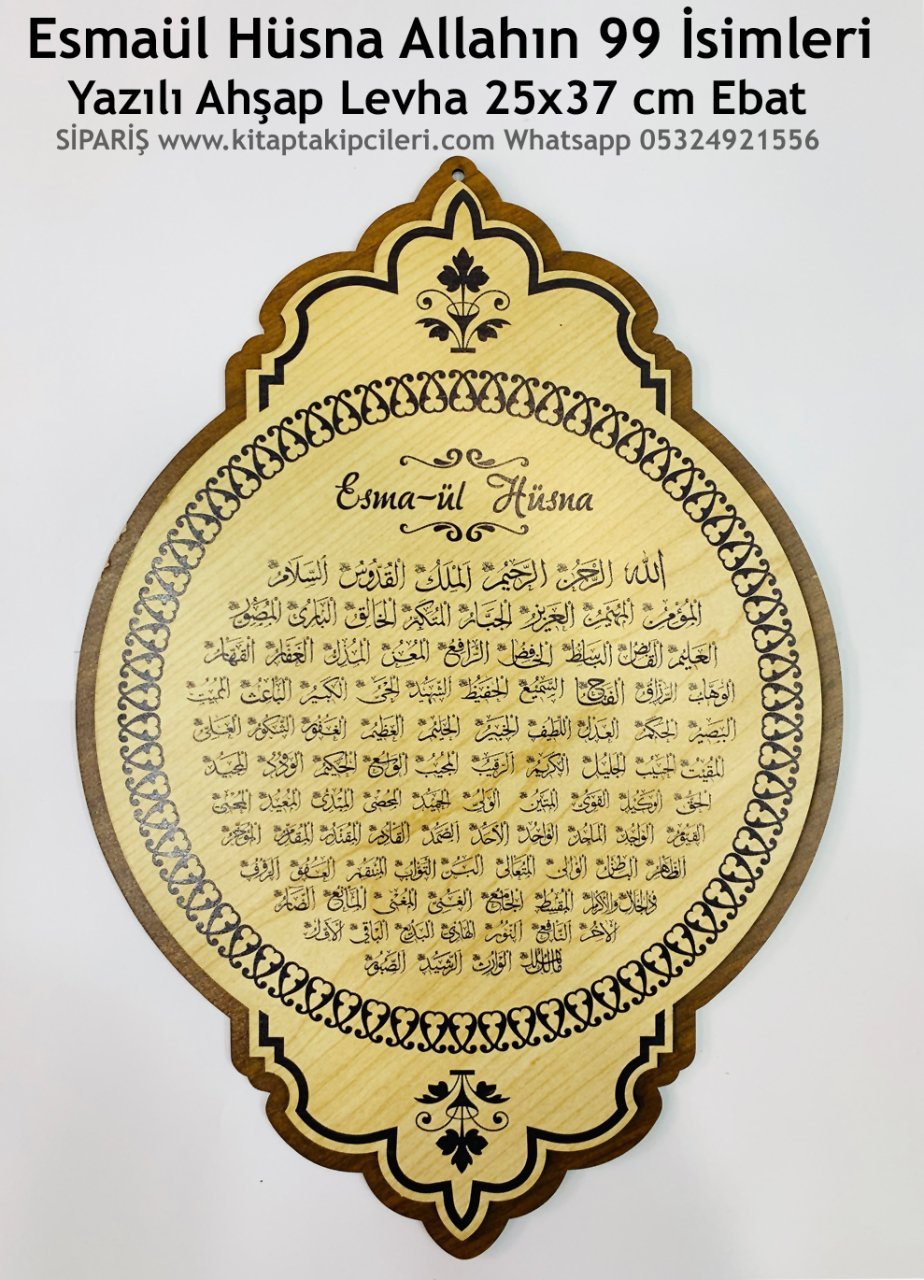 Esmaül Hüsna Allahın 99 İsimleri
Yazılı Ahşap Levha 25x37 cm Ebat
SİPARİŞ www.kitaptakipcileri.com Whatsapp 05324921556
Esma-ül Hüsna
الله الرحمن الرحيم الملك القدوس السلام
المؤمن المهيمن العزيز الجبار المتكبر الخالق البارئ المصور
العليم القابض الباسط الخافض الرافع المعز المذل الغفار القهار
الوهاب الرزاق الفتاح السميع الحفيظ الشهيد الحي الكبير الباعث المميت
البصير الحكم العدل اللطيف الخبير الحليم العظيم الغفور الشكور العلي
المقيت الحسيب الجليل الكريم الرقيب المجيب الواسع الحكيم الودود المجيد
الحق الوكيل القوي المتين الولي الحميد المحصي المبدئ المعيد المحيي
القيوم الواجد الماجد الواحد الأحد الصمد القادر المقتدر المقدم المؤخر
الظاهر الباطن الوالي المتعالي البر التواب المنتقم العفو الرؤف
ذو الجلال والإكرام المقسط الجامع الغني المغني المانع الضار
الآخر النافع النور الهادي البديع الباقي الأول
مالك الملك الوارث الرشيد الصبور